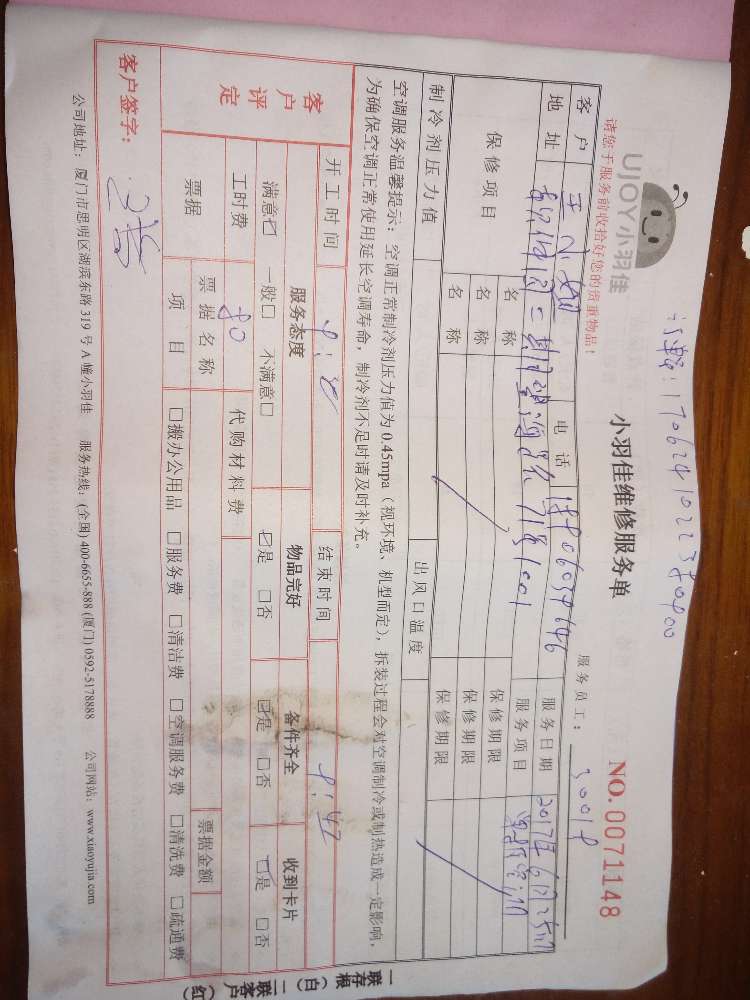 UJOY小羽佳
请您于服务前收拾好您的贵重物品!
小羽佳维修服务单
服务员工:
NO.0071148
客户 电话 服务日期 2017年6月25日
地址 服务项目
保修项目 名称 保修期限
名称 保修期限
名称 保修期限
制冷剂压力值 出风口温度
空调服务温馨提示:空调正常制冷剂压力值为 0.45mpa(视环境、机型而定),拆装过程会对空调制冷或制热造成一定影响,
为确保空调正常使用延长空调寿命,制冷剂不足时请及时补充。
开工时间 结束时间
客户评定
服务态度 物品完好 备件齐全 收到卡片
满意☑ 一般□ 不满意□ ☑是 □否 ☑是 □否 ☑是 □否
工时费 80 代购材料费
票据 票据名称 票据金额
项目 □搬办公用品 □服务费 □清洁费 □空调服务费 □清洗费 □疏通费
客户签字:
公司地址:厦门市思明区湖滨东路 319 号 A 幢小羽佳 服务热线:(全国) 400-6655-888 (厦门) 0592-5178888 公司网站:www.xiaoyujia.com
一联存根(白) 二联客户(红)